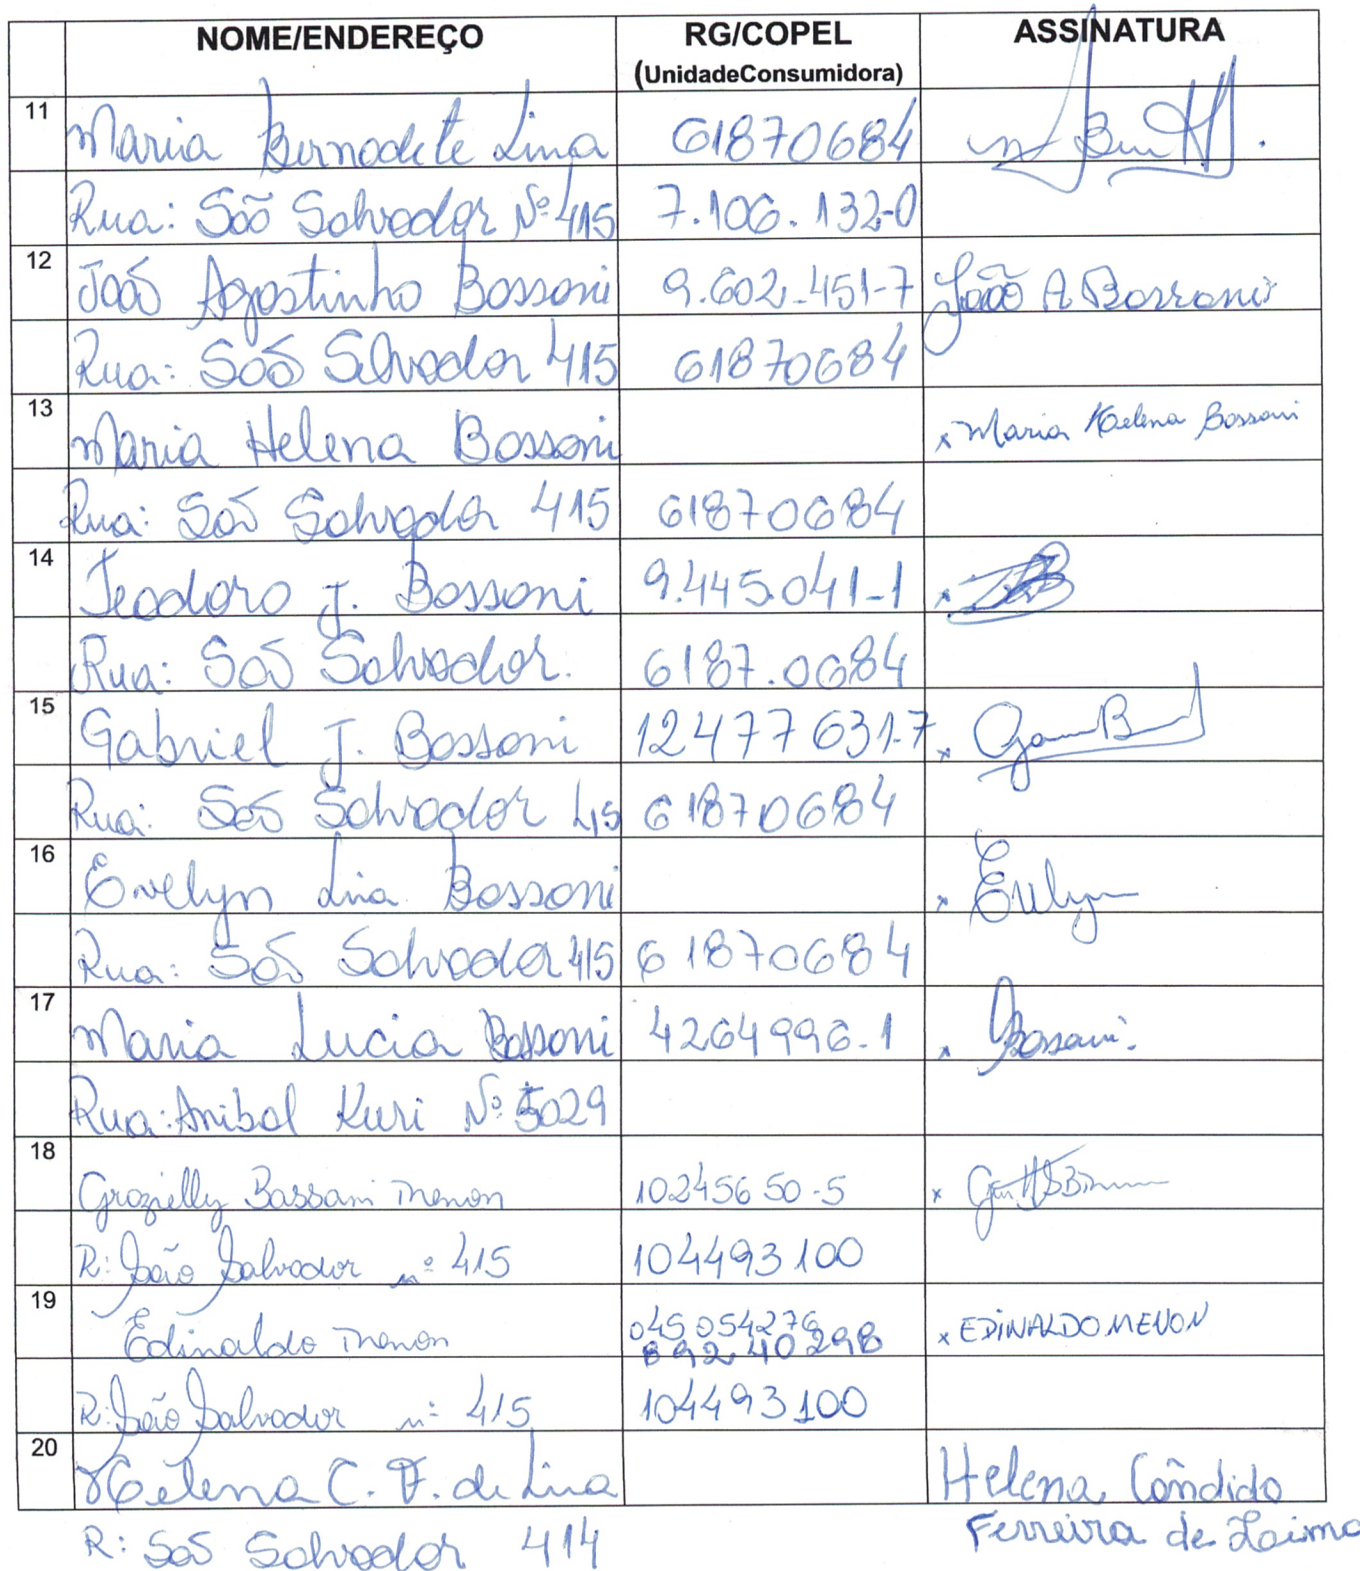 NOME/ENDEREÇO RG/COPEL ASSINATURA
(UnidadeConsumidora)
11 Maria Bernadete Lima 61870684
Rua: São Salvador Nº 415 7.106.132-0
12 João Agostinho Bossoni 9.602.451-7 João A Bossoni
Rua: São Salvador 415 61870684
13 Maria Helena Bossoni x Maria Helena Bossoni
Rua: São Salvador 415 61870684
14 Teodoro J. Bossoni 9.445.041-1 x
Rua: São Salvador. 6187.0684
15 Gabriel J. Bossoni 12477631-7 x
Rua: São Salvador 415 61870684
16 Evelyn Lima Bossoni x Evelyn
Rua: São Salvador 415 61870684
17 Maria Lucia Bossoni 4264996-1 x Bossoni
Rua: Anibal Kuri Nº 5029
18 Grazielly Bassani Menon 10245650-5 x
R: São Salvador nº 415 104493100
19 Edinaldo Menon 045054276 x EDINALDO MENON
89240298
R: São Salvador nº 415 104493100
20 Helena C. F. de Lima Helena Cândido
R: São Salvador 414 Ferreira de Laima